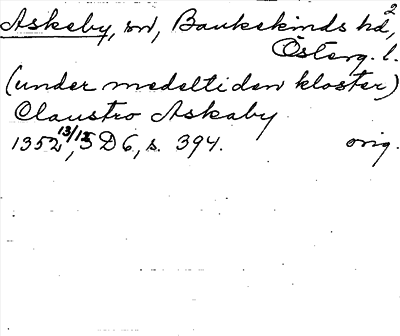 Askeby, sn, Bankekinds hd,2
Österg. l.
(under medeltiden kloster)
Claustro Askaby
1352 13/12, SD 6, s. 394. orig.